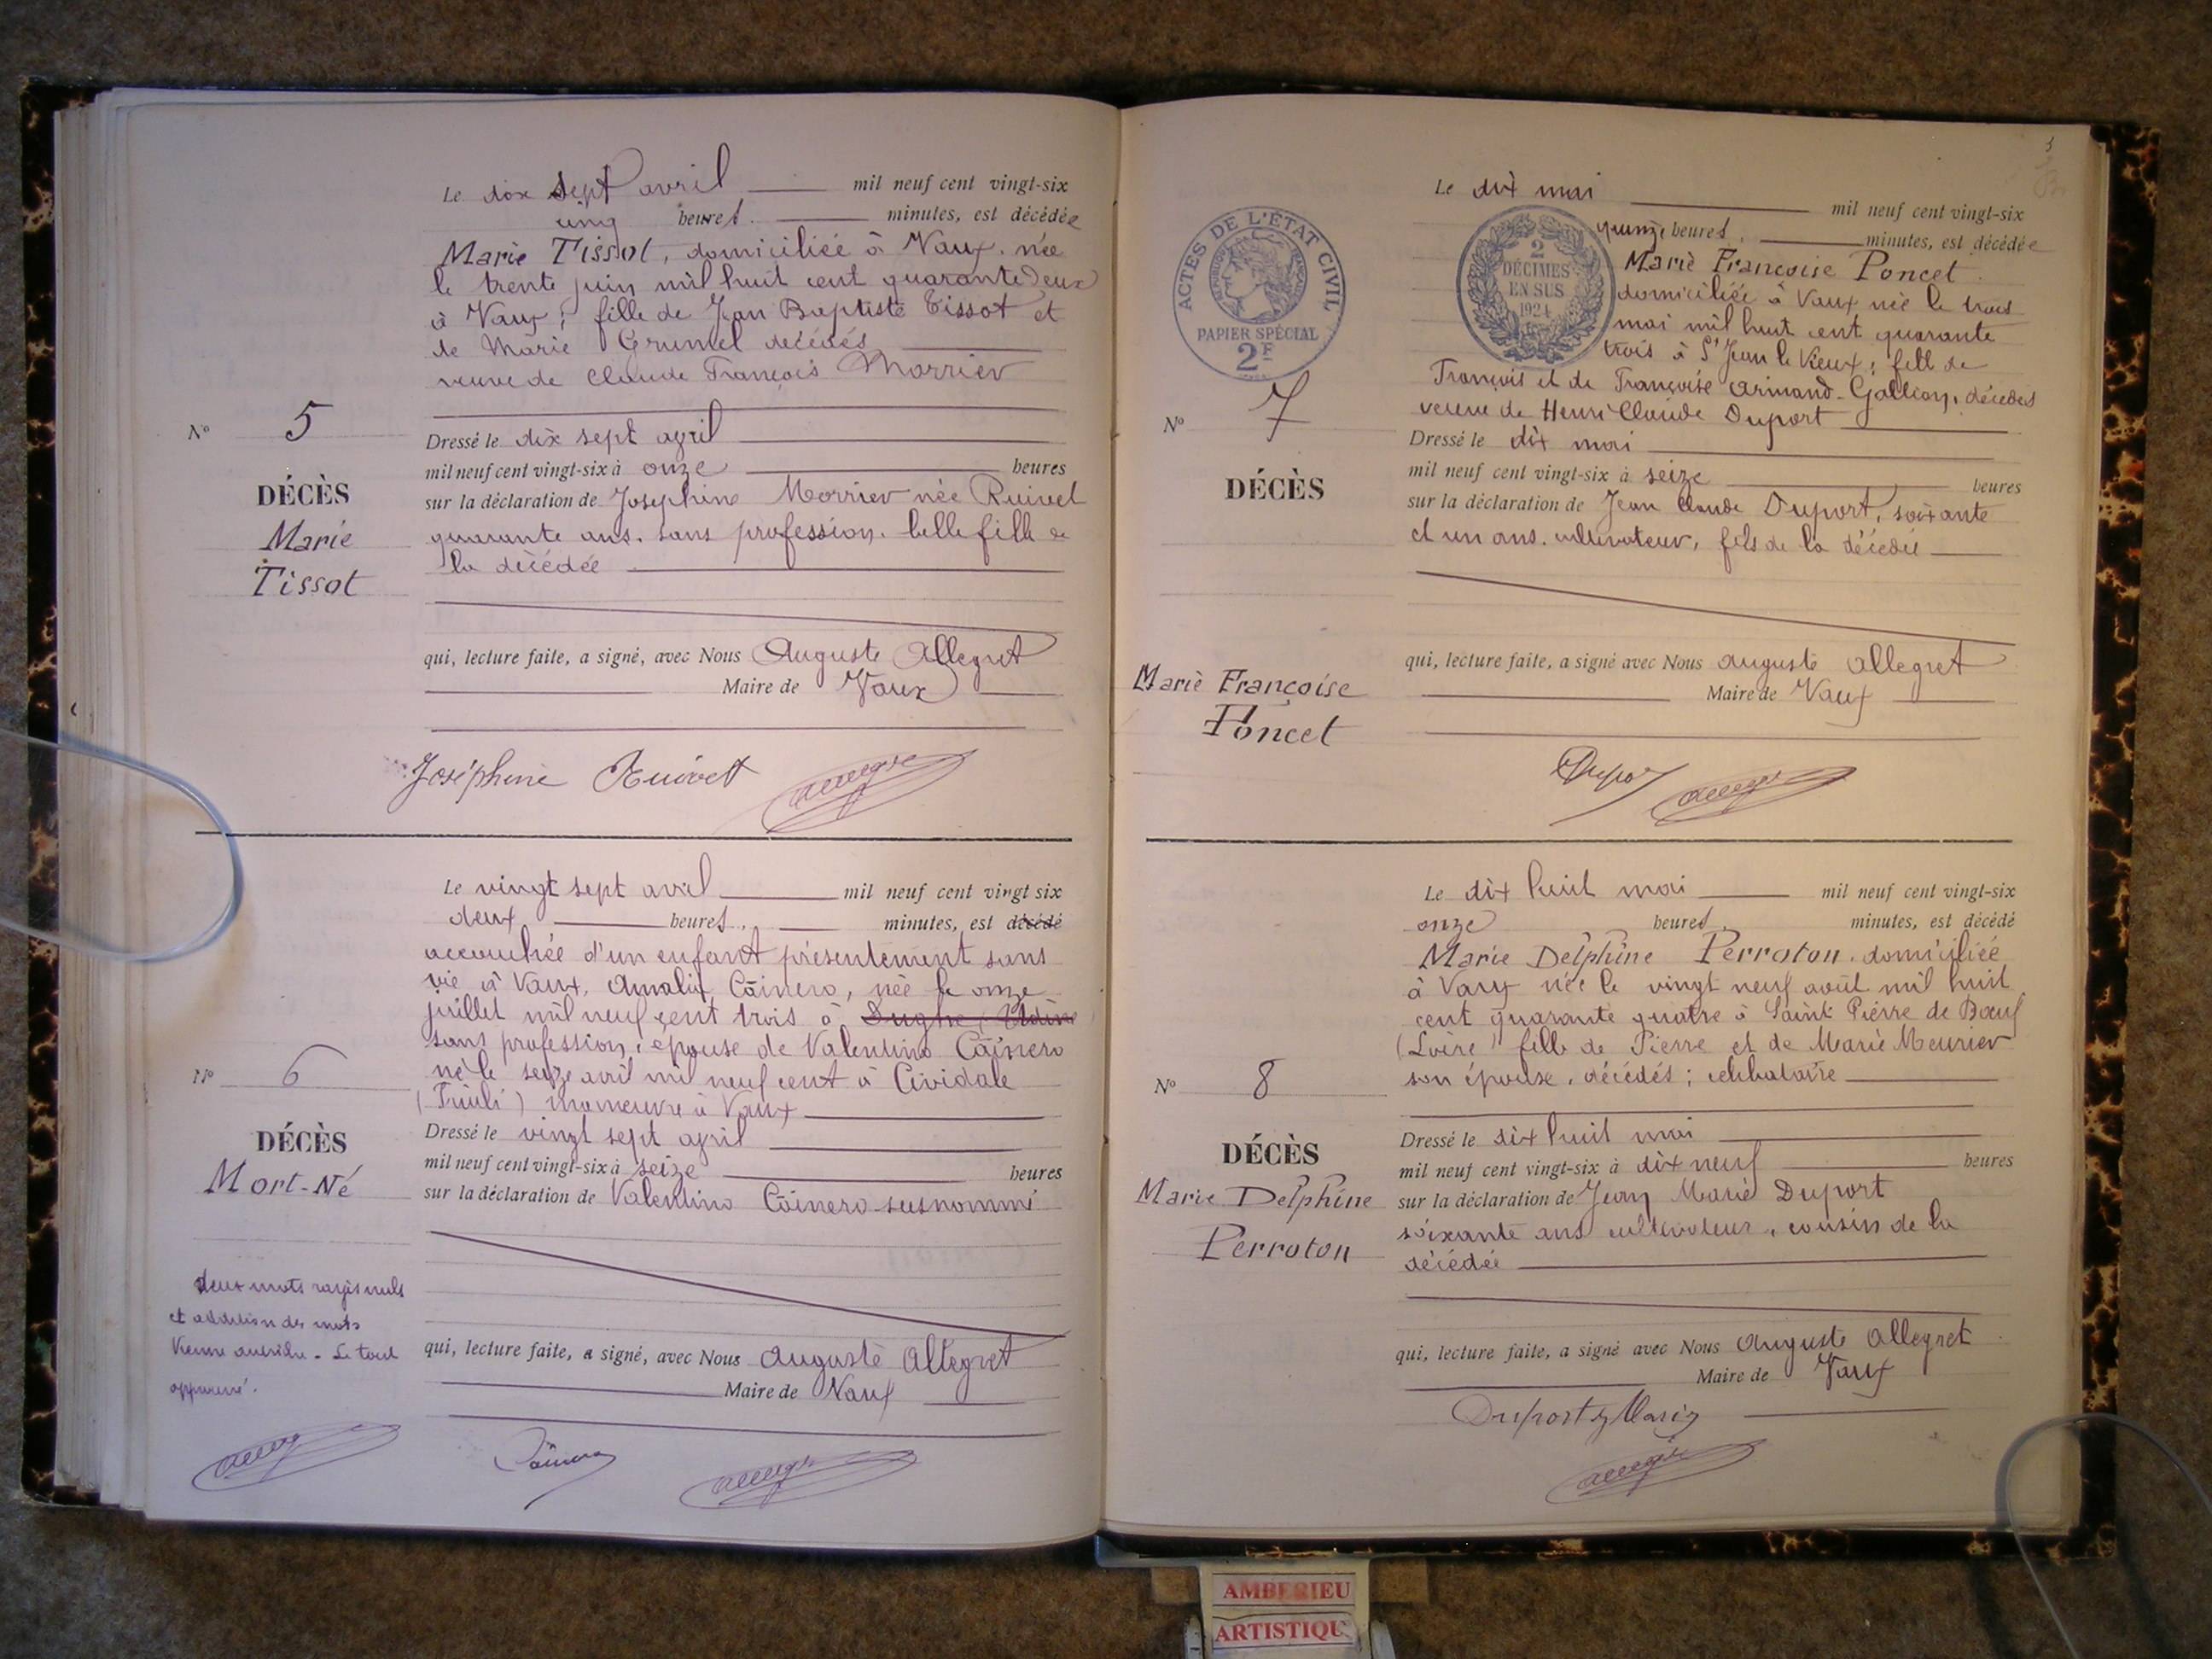 Le dix sept avril mil neuf cent vingt-six
cinq heures minutes, est décédée
Marie Tissot, domiciliée à Vaux, née
le trente juin mil huit cent quarante deux
à Vaux; fille de Jean Baptiste Tissot et
de Marie Grumel décédés
veuve de Claude François Morrier
N° 5
Dressé le dix sept avril
mil neuf cent vingt-six à onze heures
DÉCÈS
sur la déclaration de Joséphine Morrier née Ruivet
Marie
quarante ans, sans profession, belle fille de
Tissot
la décédée
qui, lecture faite, a signé, avec Nous Auguste Allegret
Maire de Vaux
Joséphine Ruivet
Le vingt sept avril mil neuf cent vingt six
deux heures, minutes, est décédé
accouchée d'un enfant présentement sans
vie à Vaux, Amalia Cainero, née le onze
juillet mil neuf cent trois à
sans profession, épouse de Valentino Cainero
né le seize avril mil neuf cent à Cividale
N° 6
(Friuli) manœuvre à Vaux
Dressé le vingt sept avril
DÉCÈS
mil neuf cent vingt-six à seize heures
Mort-Né
sur la déclaration de Valentino Cainero susnommé
deux mots rayés nuls
et addition des mots
Vienne autriche. Le tout
approuvé.
qui, lecture faite, a signé, avec Nous Auguste Allegret
Maire de Vaux
Cainero
Le dix mai mil neuf cent vingt-six
ACTES DE L'ÉTAT CIVIL
PAPIER SPÉCIAL
2F
2
DÉCIMES
EN SUS
1924
quinze heures, minutes, est décédée
Marie Françoise Poncet
domiciliée à Vaux, née le trois
mai mil huit cent quarante
trois à St Jean le Vieux; fille de
François et de Françoise Armand-Gallion, décédés
N° 7
veuve de Henri Claude Duport
Dressé le dix mai
DÉCÈS
mil neuf cent vingt-six à seize heures
sur la déclaration de Jean Claude Duport, soixante
et un ans, cultivateur, fils de la décédée
qui, lecture faite, a signé avec Nous Auguste Allegret
Marie Françoise
Poncet
Maire de Vaux
Le dix huit mai mil neuf cent vingt-six
onze heures, minutes, est décédé
Marie Delphine Perroton, domiciliée
à Vaux née le vingt neuf août mil huit
cent quarante quatre à Saint Pierre de Bœuf
(Loire) fille de Pierre et de Marie Meurier
N° 8
son épouse, décédés; célibataire
Dressé le dix huit mai
DÉCÈS
mil neuf cent vingt-six à dix neuf heures
Marie Delphine
Perroton
sur la déclaration de Jean Marie Duport
soixante ans cultivateur, cousin de la
décédée
qui, lecture faite, a signé avec Nous Auguste Allegret
Maire de Vaux
AMBERIEU
ARTISTIQU